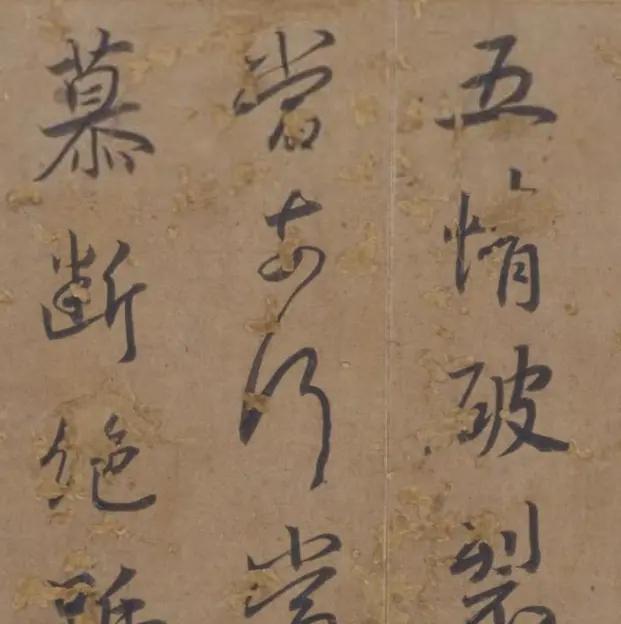 五情破裂
當奈何當
慕斷絕